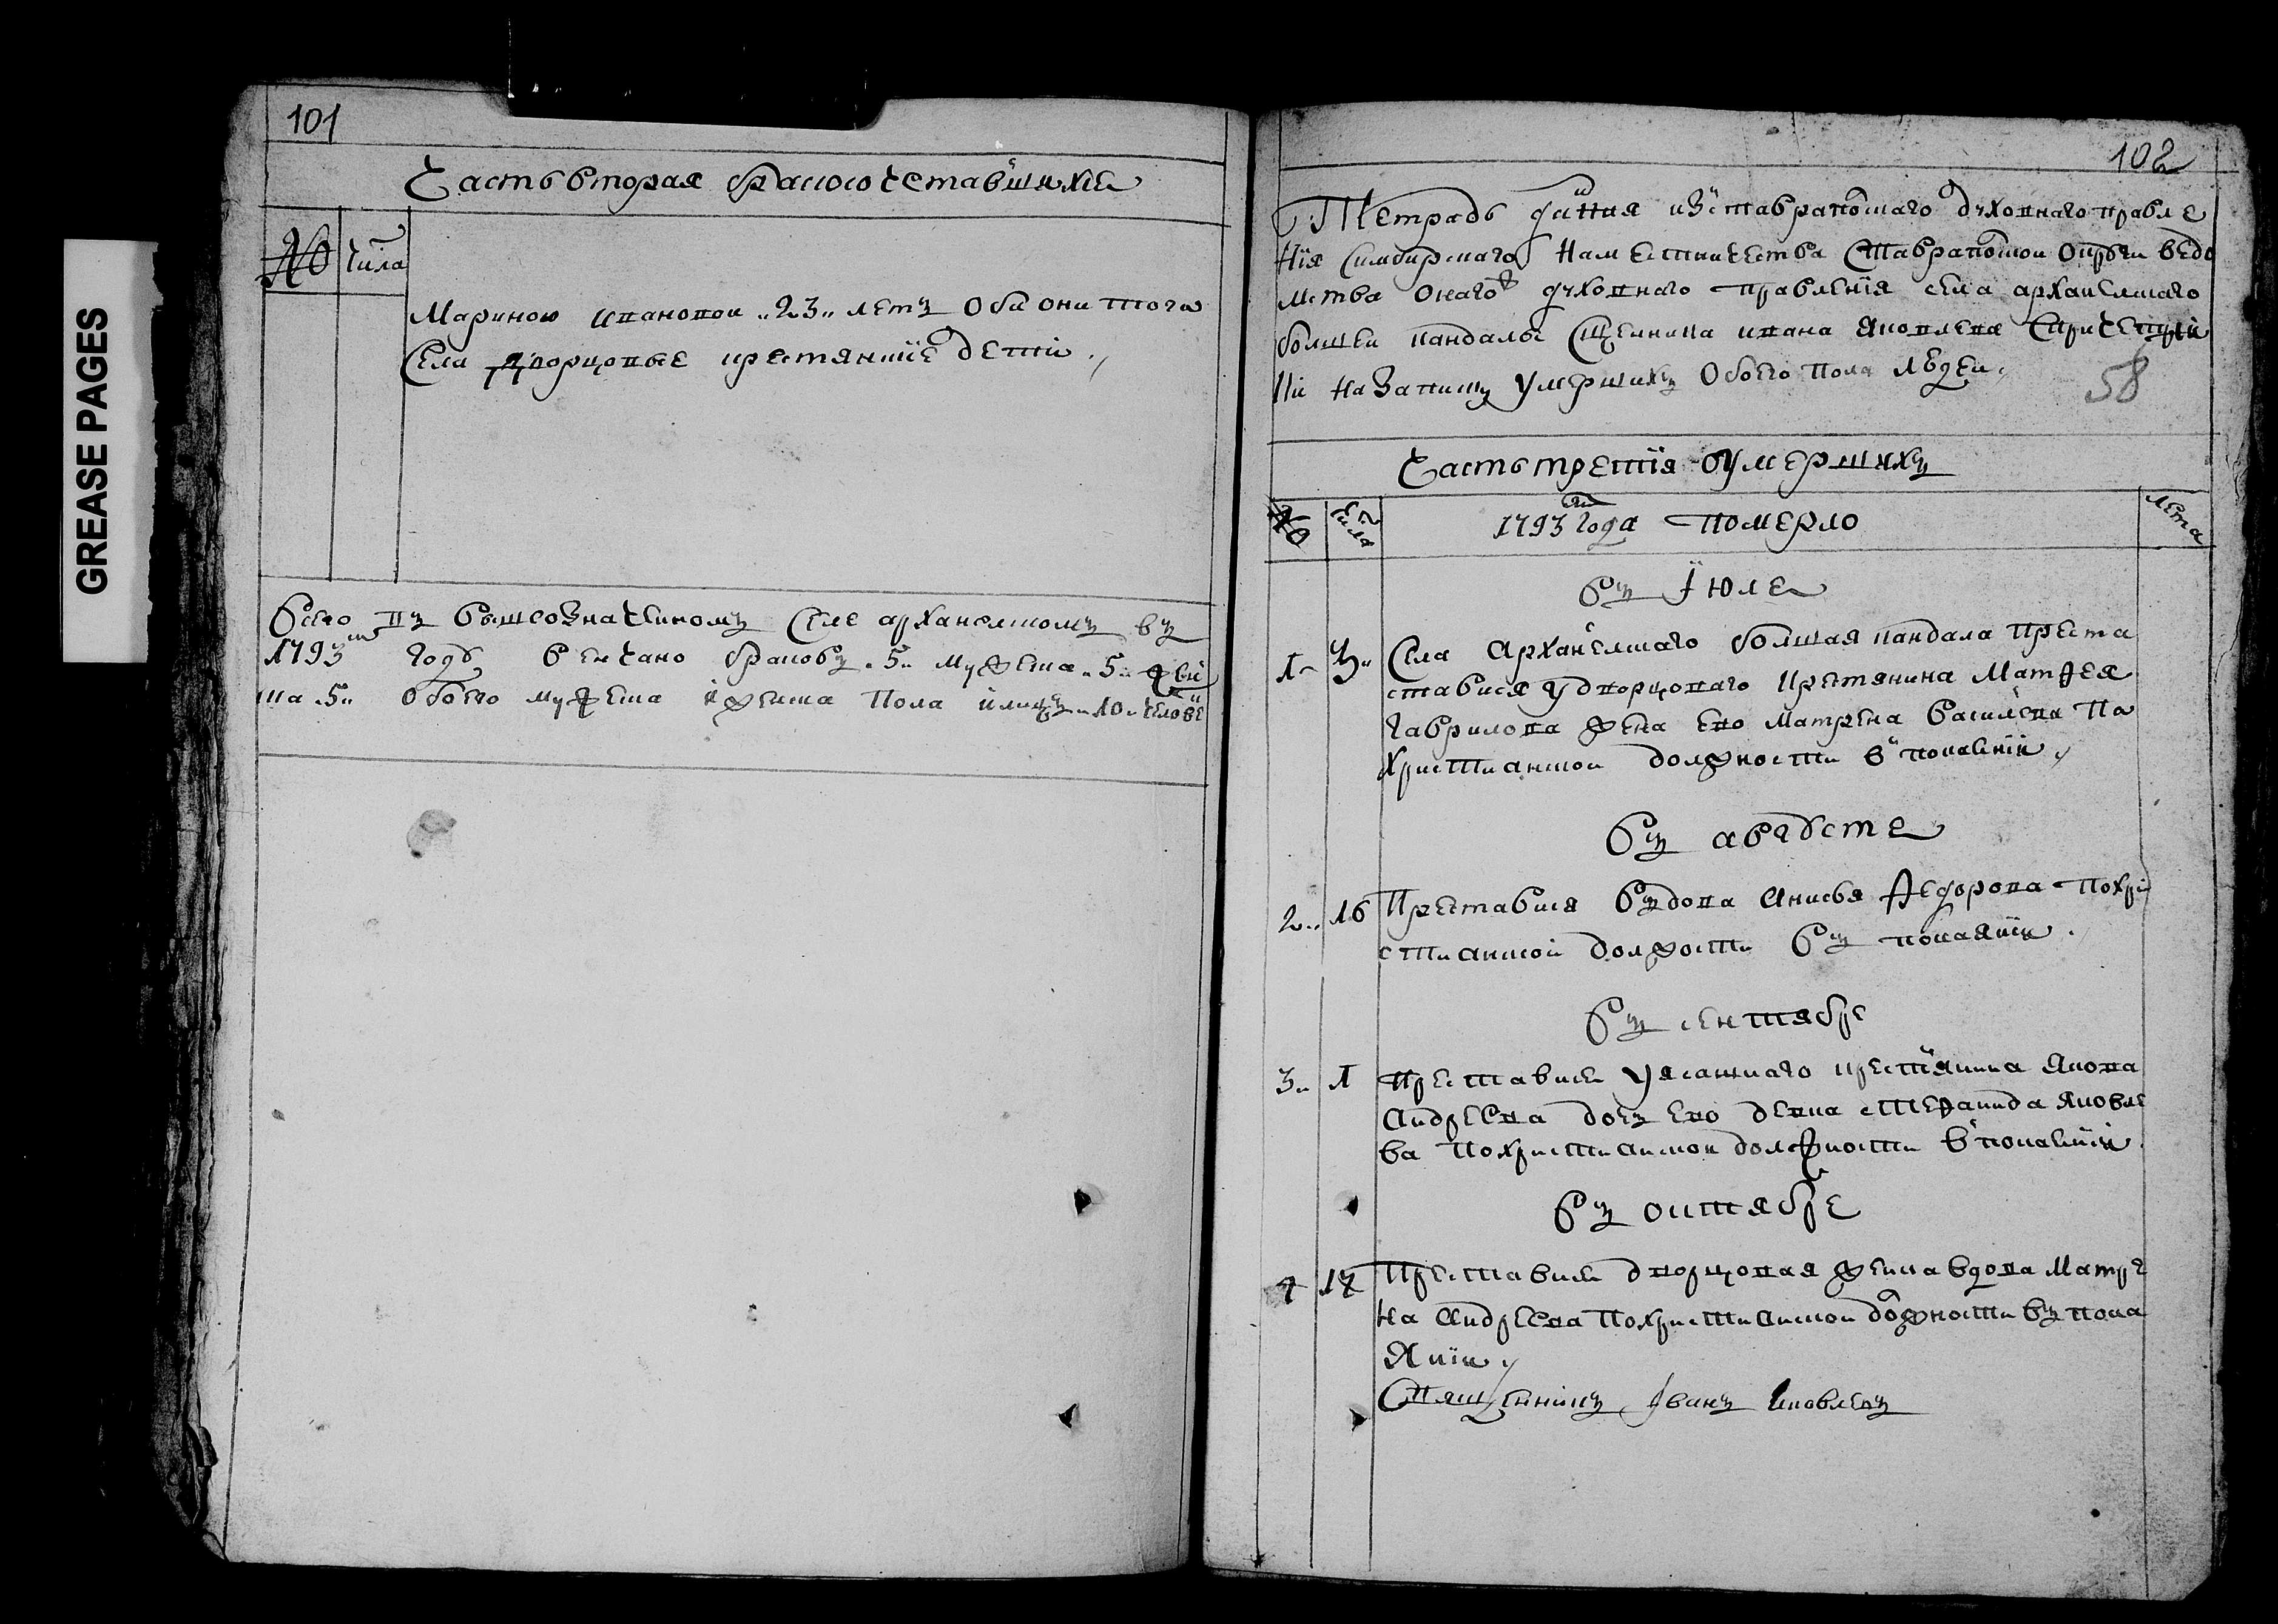 GREASE PAGES
101
Часть вторая бракосочетавшихся
№ Числа
Мариною Ивановой „23„ летъ Оба они того
Села дворцовые крестянские дети
Всего въ вышеозначеномъ Селе арханелскомъ въ
1793м годъ Венчано браковъ „5„ мужеска „5„
ска „5„ Обоего мужеска ї женска Пола їлицъ „10„ челове
102
Тетрадь даная изставрапольскаго духовнаго правле
нїя Симбирскаго Наместничества Ставрапольской округи ведо
мства онаго духовнаго правленїя села арханелскаго
болшей кандалы Сщенника ивана Яковлева Спричетни
ки На Записку Умершихъ Обоего Пола людей
58
Часть третїя оумершихъ
№ Числа 1793 года Померло Лета
Въ Їюле
1 3„ Села Арханелскаго болшая кандала Преста
ставися у дворцоваго Крестянина Матфея
Гаврилова жена ево Матрена Василева По
христианской должности в покаянїи
Въ августе
2„ 16 Преставися Въдова Анисья Ѳедорова Похри
стианской должости Въ покаянїи
Въ сентябре
3„ 1 Преставися Уясашнаго крестїянина Якова
Андреева дочъ ево девка стефанида Яковле
ва Похристианской должности в покаянїи
Въ октябре
4 17 Преставися дворцовая женка вдова Матре
на Андреева Похристианской должности въ пока
янїи
Священникъ Їванъ Яковлевъ